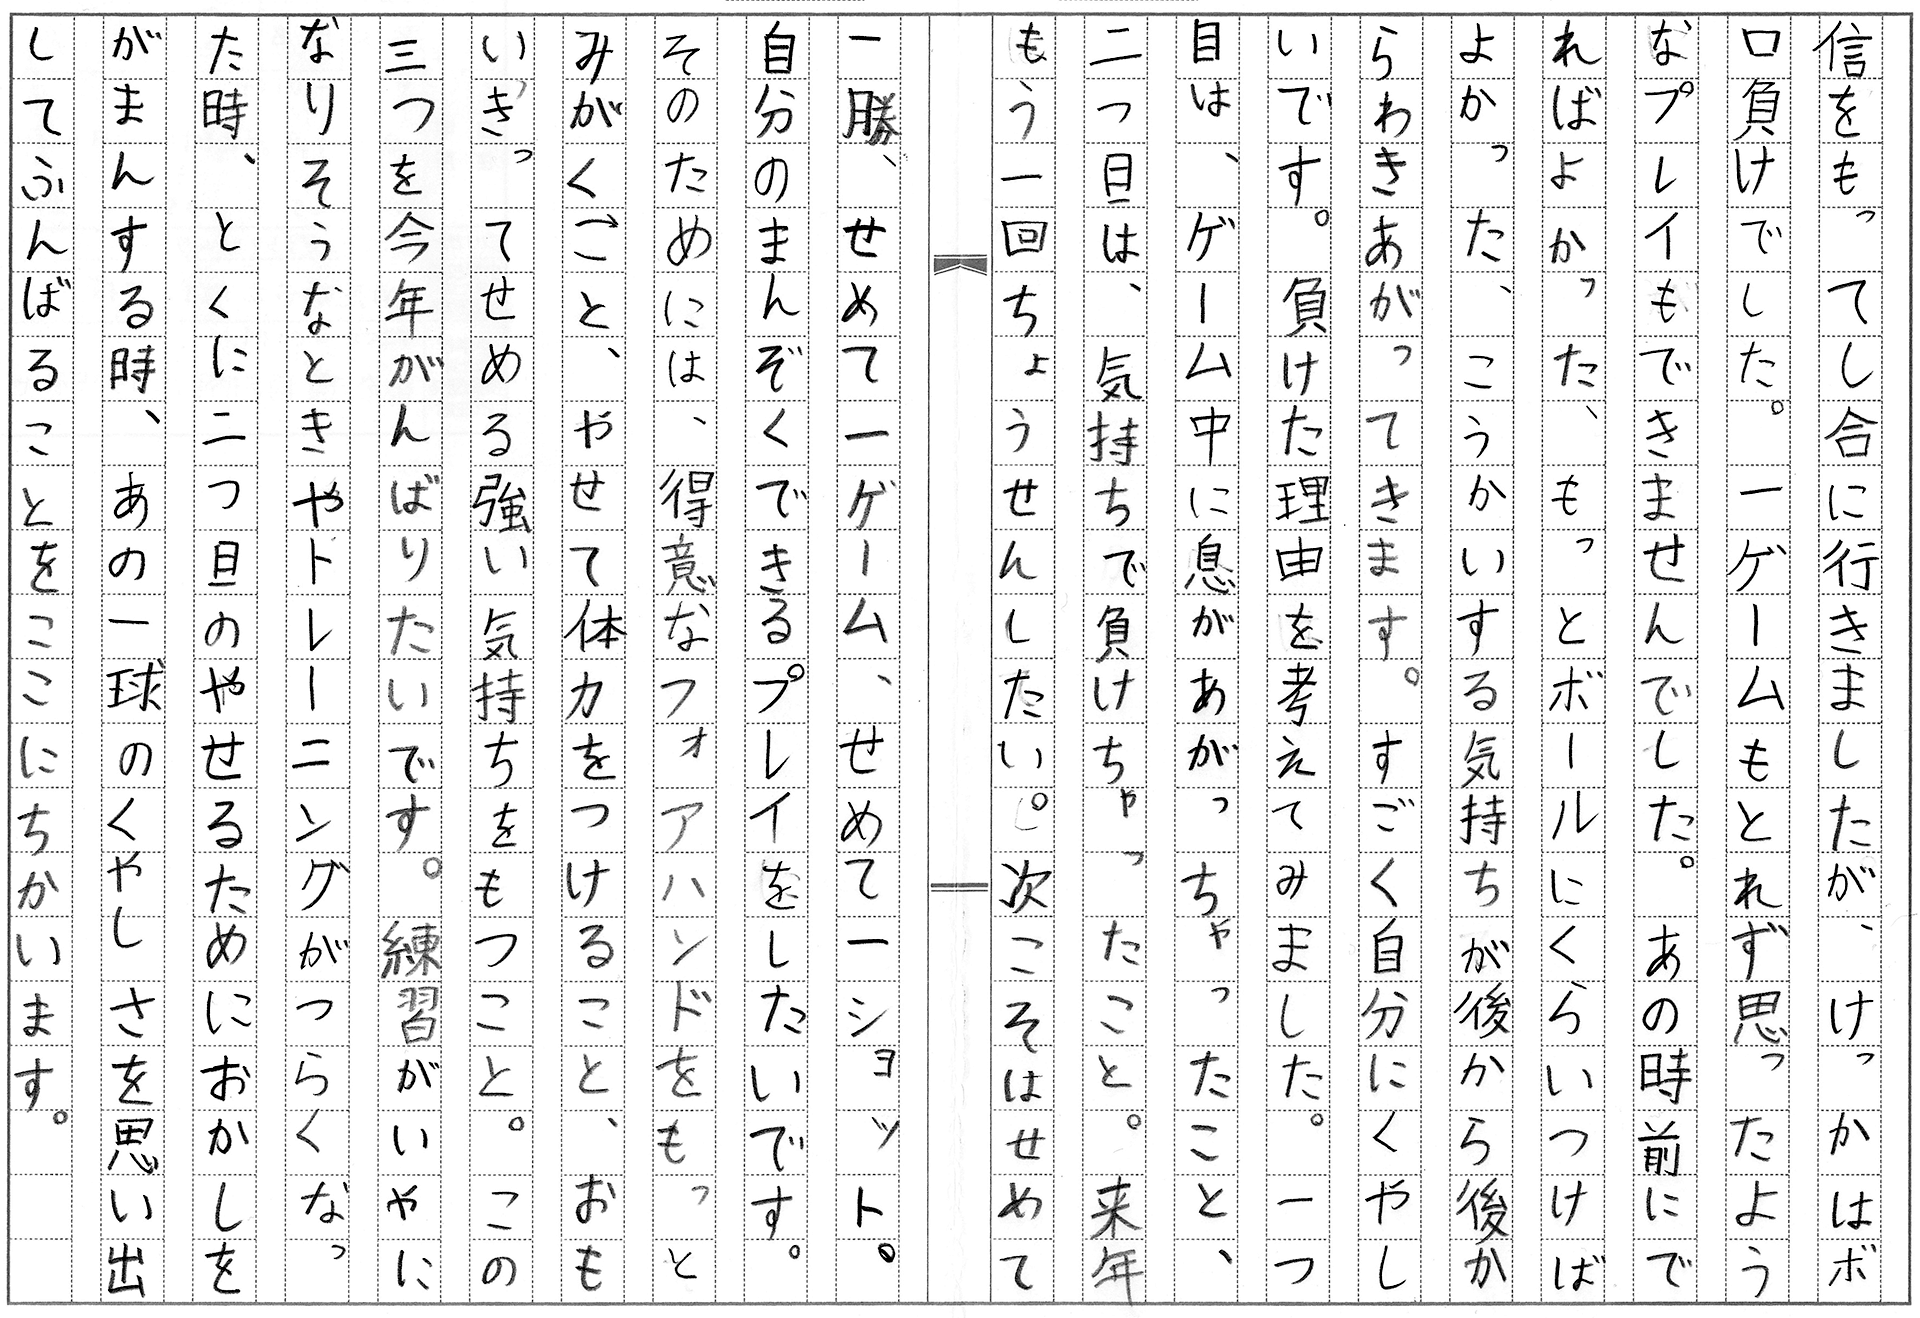 信をもってし合に行きましたが、けっかはボ
ロ負けでした。一ゲームもとれず思ったよう
なプレイもできませんでした。あの時前にで
ればよかった、もっとボールにくらいつけば
よかった、こうかいする気持ちが後から後か
らわきあがってきます。すごく自分にくやし
いです。負けた理由を考えてみました。一つ
目は、ゲーム中に息があがっちゃったこと、
二つ目は、気持ちで負けちゃったこと。来年
もう一回ちょうせんしたい。次こそはせめて
一勝、せめて一ゲーム、せめて一ショット。
自分のまんぞくできるプレイをしたいです。
そのためには、得意なフォアハンドをもっと
みがくこと、やせて体力をつけること、おも
いきってせめる強い気持ちをもつこと。この
三つを今年がんばりたいです。練習がいやに
なりそうなときやトレーニングがつらくなっ
た時、とくに二つ目のやせるためにおかしを
がまんする時、あの一球のくやしさを思い出
してふんばることをここにちかいます。